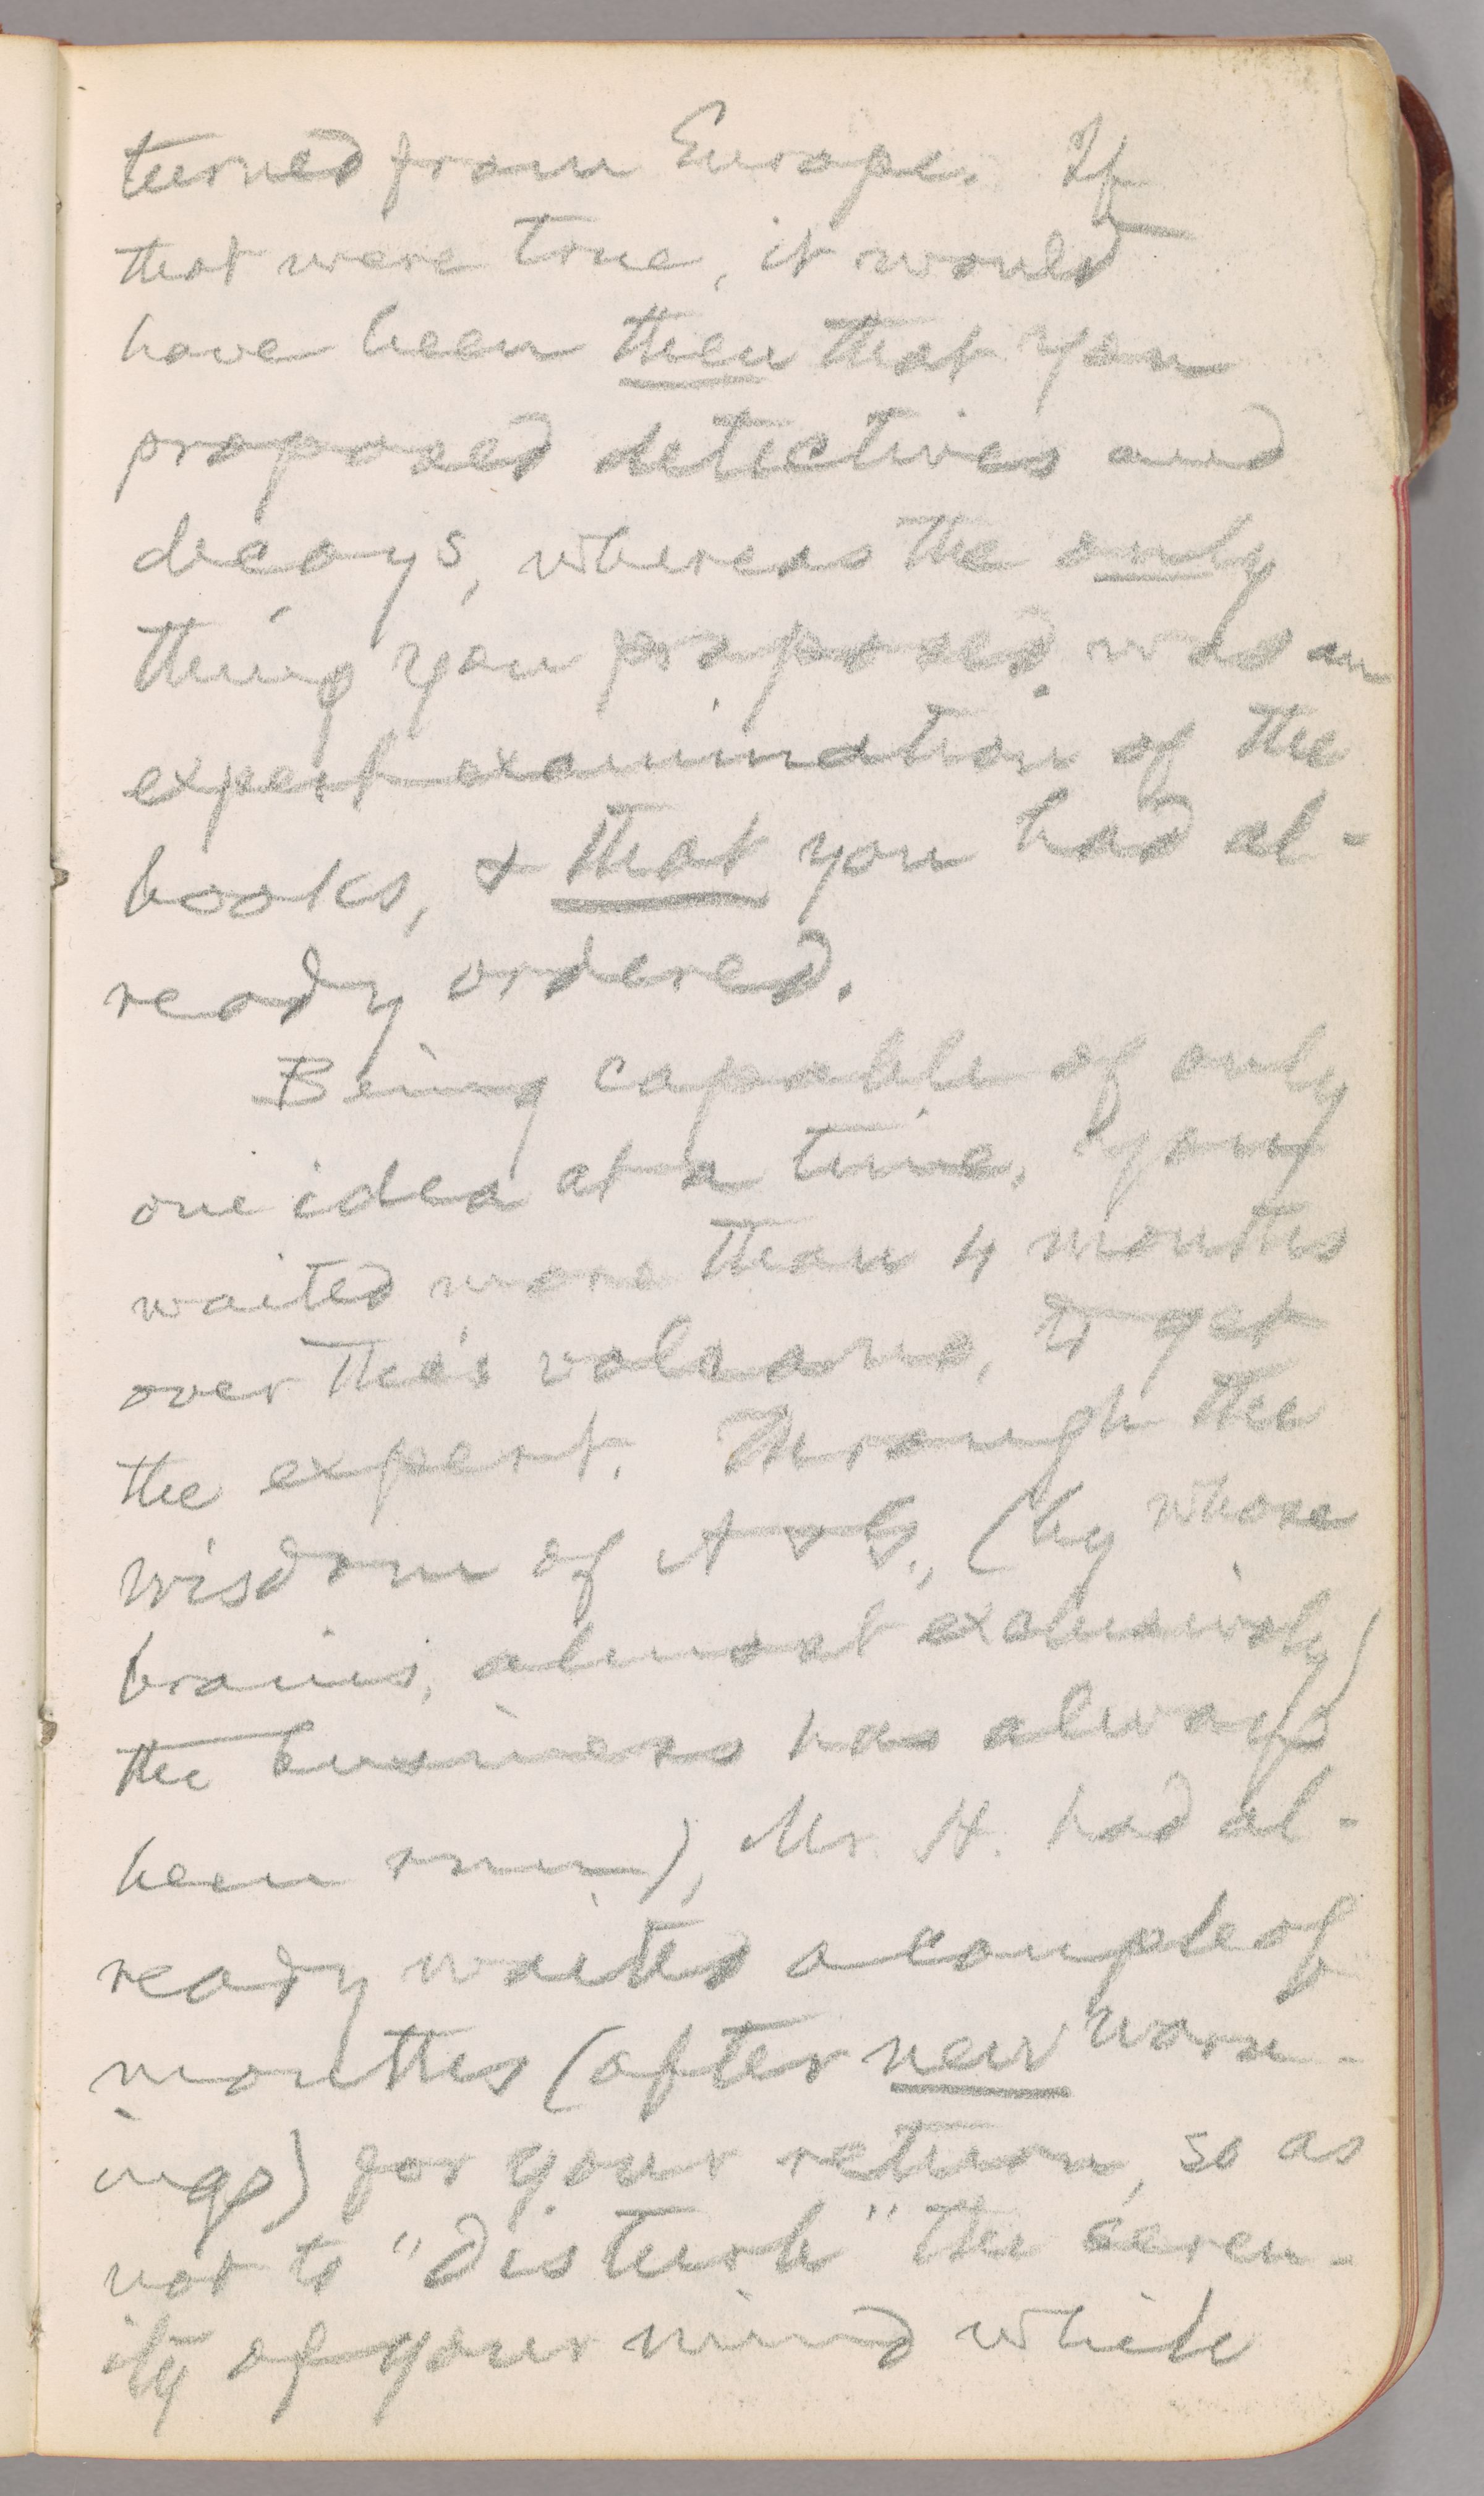 turned from Europe. If
that were true, it would
have been then that you
proposed detectives and
decoys, whereas the only
thing you proposed was an
expert examination of the
books, & that you had al-
ready ordered.
Being capable of only
one idea at a time, you
waited more than 4 months
over this volcano, to get
the expert. Through the
wisdom of A & G., (by whose
brains, almost exclusively)
the business has always
been run), Mr. H. had al-
ready waited a couple of
months (after new warn-
ings) for your return, so as
not to "disturb" the seren-
ity of your mind while